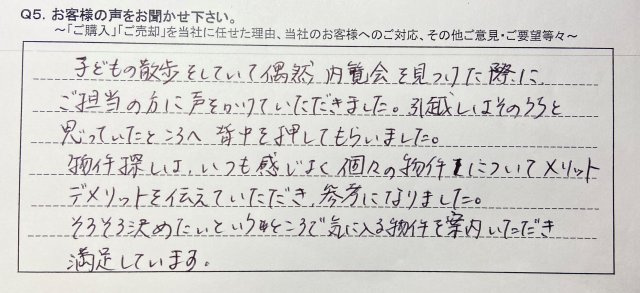 Q5. お客様の声をお聞かせ下さい。
～「ご購入」「ご売却」を当社に任せた理由、当社のお客様へのご対応、その他ご意見・ご要望等々～
子どもの散歩をしていて偶然内覧会を見つけた際に
ご担当の方に声をかけていただきました。引越しはそのうちと
思っていたところへ背中を押してもらいました。
物件探しは、いつも感じよく個々の物件についてメリット
デメリットを伝えていただき、参考になりました。
そろそろ決めたいというところで気に入る物件を案内いただき
満足しています。